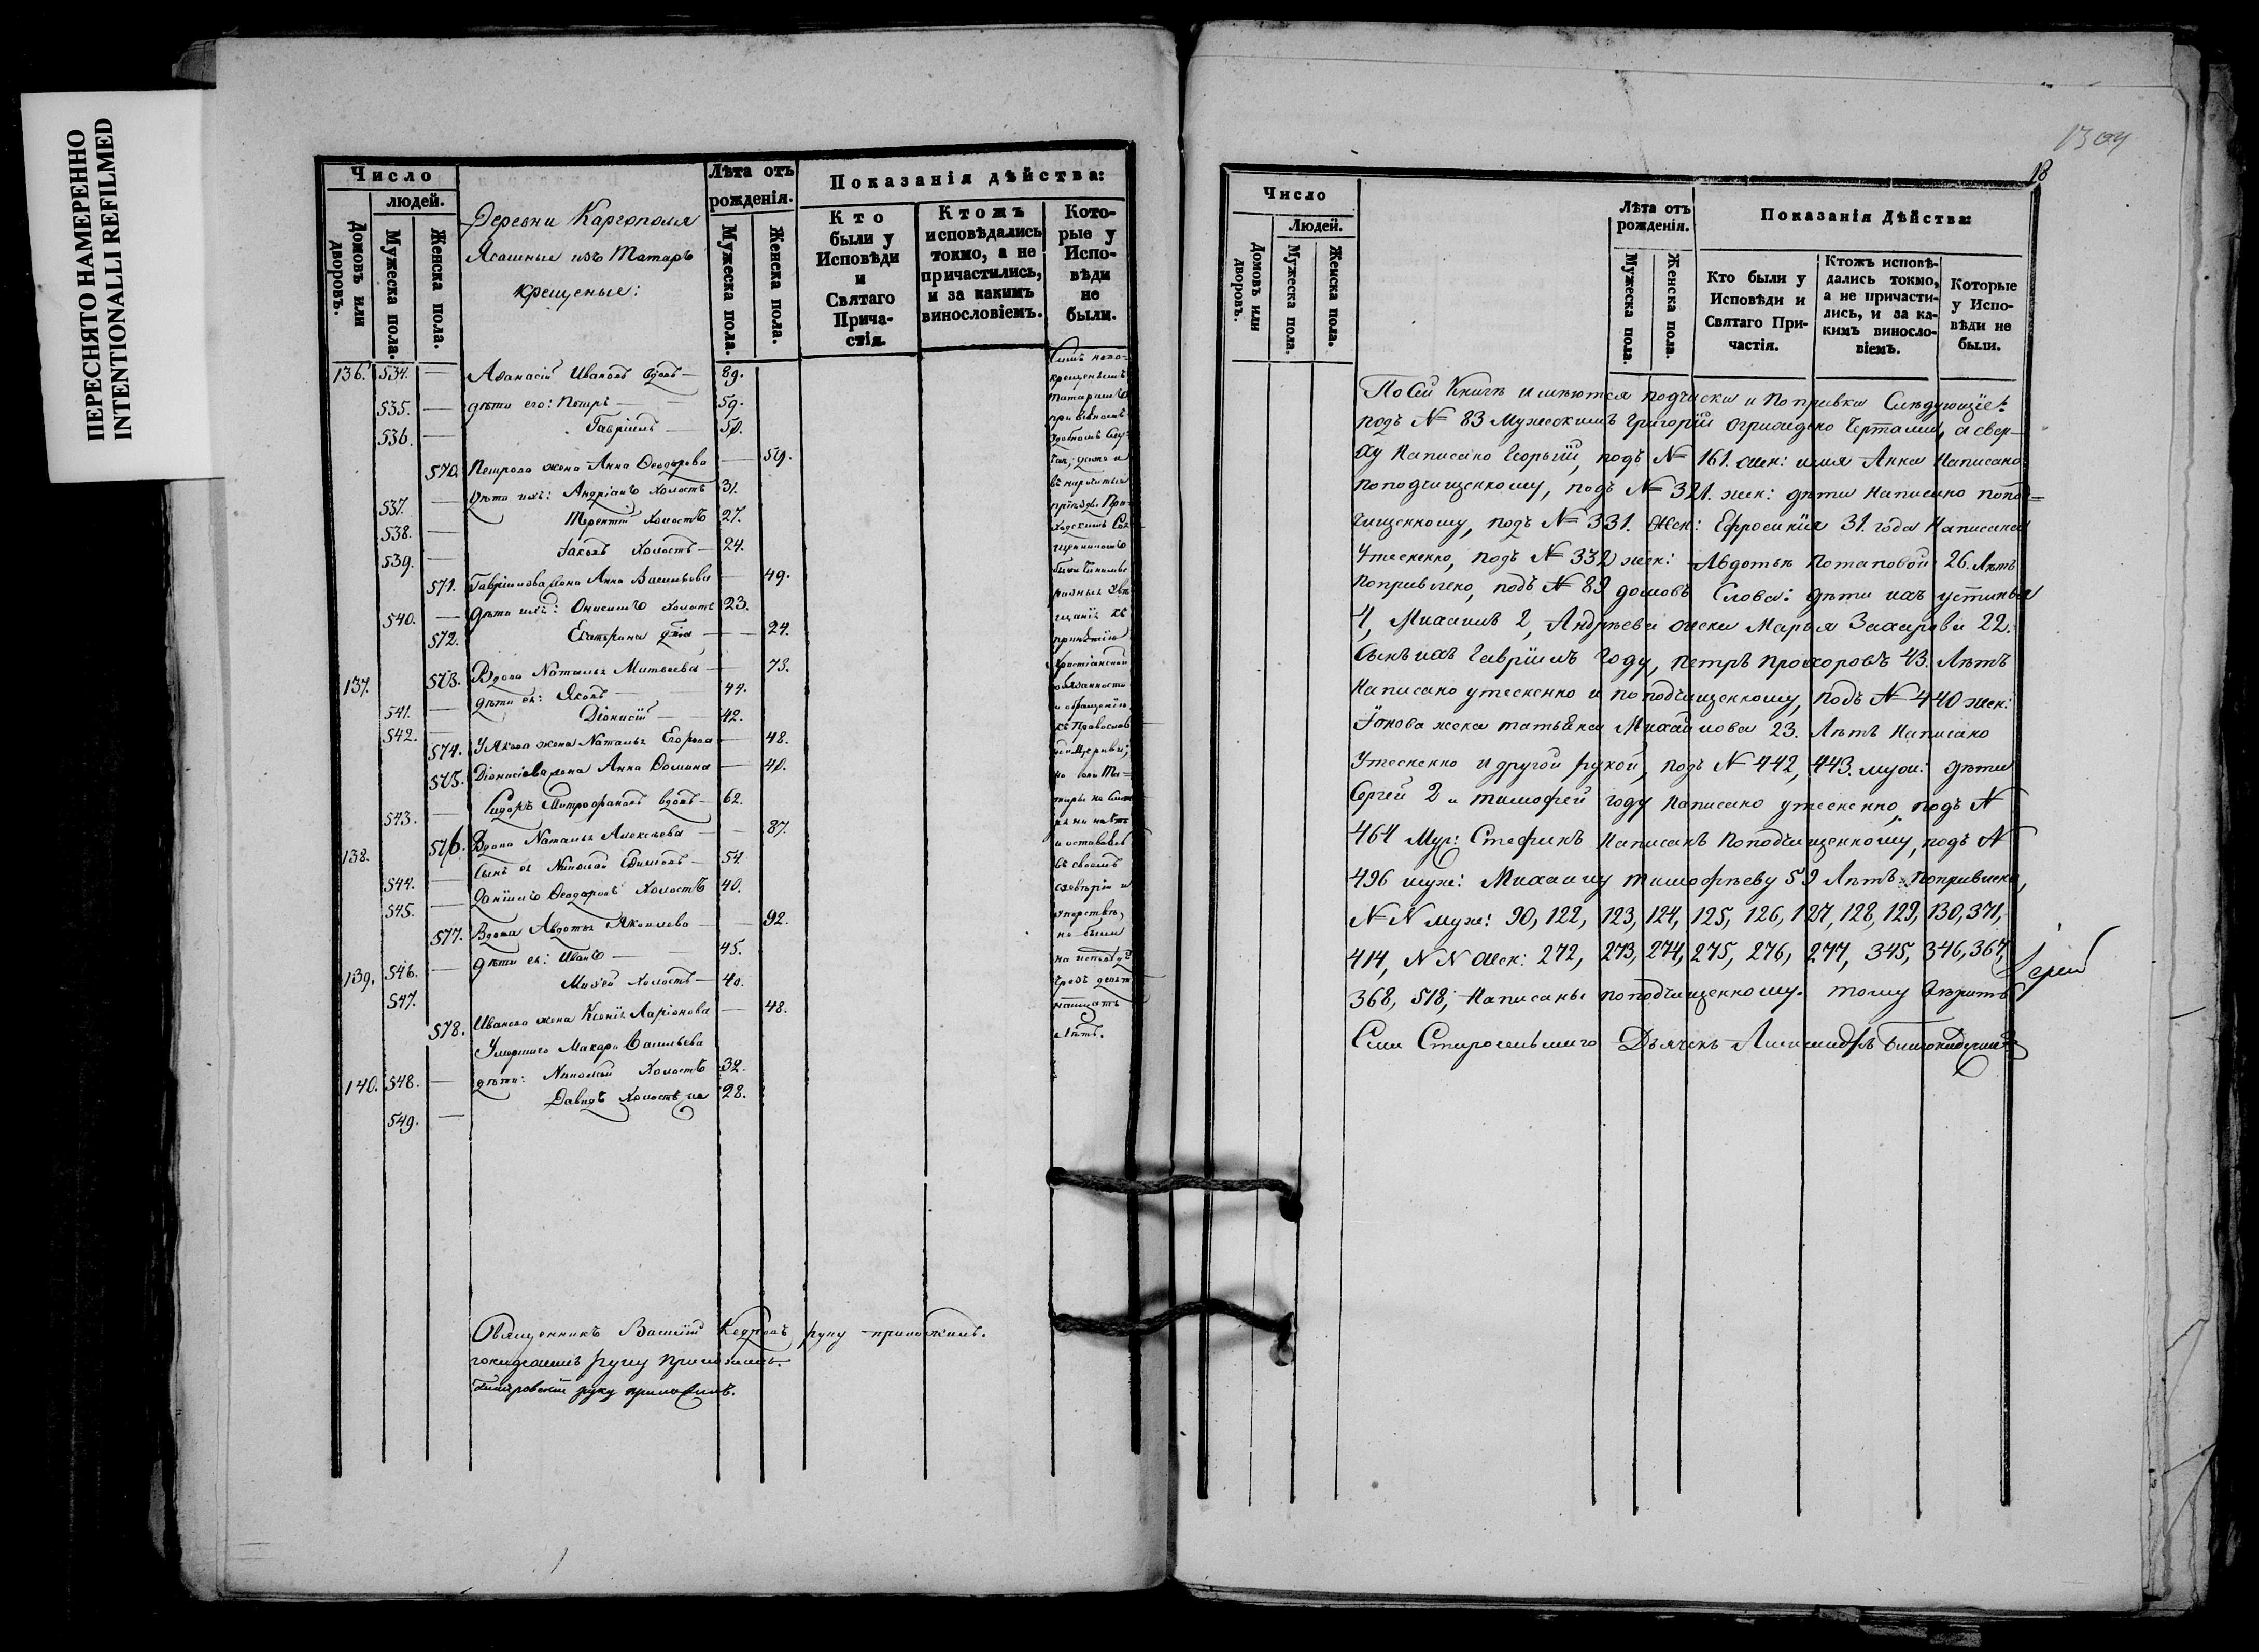 ПЕРЕСНЯТО НАМЕРЕННО
INTENTIONALLI REFILMED
Число
людей.
Домовъ или дворовъ.
Мужеска пола.
Женска пола.
Деревни Каргополя
Ясашные изъ Татаръ
крещеные:
Лѣта отъ рожденія.
Мужеска пола.
Женска пола.
Показанія дѣйства:
Кто были у Исповѣди и Святаго Причастія.
Ктожъ исповѣдались токмо, а не причастились, и за какимъ винословіемъ.
Которые у Исповѣди не были.
136. 534. — Аѳанасій Ивановъ вдовъ — 89.
535. — дѣти его: Петръ — 59.
536. — Гавріилъ — 50.
570. Петрова жена Анна Ѳеодорова — 59.
537. — дѣти ихъ: Андріанъ холостъ 31.
538. — Терентій холостъ 27.
539. — Іаковъ холостъ — 24.
571. Гавріилова жена Анна Васильева — 49.
540. — дѣти ихъ: Онисимъ холостъ 23.
572. Екатерина — 24.
137. 573. Вдова Наталья Матвеева — 73.
541. — дѣти ея: Яковъ — 44.
542. — Діонисій — 42.
574. У Якова жена Наталья Егорова — 48.
575. Діонисіева жена Анна Ѳомина — 40.
543. — Сидоръ Митрофановъ вдовъ — 62.
138. 576. Вдова Наталья Алексѣева — 87.
544. — Сынъ ея Николай Ефимовъ — 54.
545. — Даніилъ Ѳеодоровъ холостъ 40.
577. Вдова Авдотья Яковлева — 92.
139. 546. — дѣти ея: Иванъ — 45.
547. Михей холостъ — 40.
578. Иванова жена Ксенія Ларіонова — 48.
Умершаго Макара Васильева
140. 548. — дѣти: Николай холостъ 32.
549. — Давидъ холостъ 28.
Симъ ново-
крещенымъ
татарамъ
при всякомъ
удобномъ слу-
чаѣ, даже и
въ нарочитые
пріѣзды
были чинимы
разныя увѣ-
щаніи къ
принятію
христіанской
обязанности
и обращенію
къ Православ-
ной Церкви;
но они Та-
тары
и оставаясь
въ своемъ
суевѣріи и
упорствѣ,
не были
на исповѣди
лѣтъ.
Священникъ Василій Кедровъ руку приложилъ.
руку приложилъ.
руку приложилъ.
18
Число
Людей.
Домовъ или дворовъ.
Мужеска пола.
Женска пола.
Лѣта отъ рожденія.
Мужеска пола.
Женска пола.
Показанія Дѣйства:
Кто были у Исповѣди и Святаго Причастія.
Ктожъ исповѣдались токмо, а не причастились, и за какимъ винословіемъ.
Которые у Исповѣди не были.
По сей Книгѣ имѣются подчистки и поправки слѣдующіе:
подъ № 83 Мужескимъ Григорій чертами, а свер-
ху написано Георгій, подъ № 161. жен: имя Анна написано
поподчищенному, подъ № 321. жен: дѣти написано попод-
чищенному, подъ № 331. жен: Ефросинія 31. года написана
утесненно, подъ № 332 жен: Авдотьи Потаповой 26. лѣтъ
поправлено, подъ № 89 домовъ слова: дѣти ихъ устинья
4, Михаилъ 2, Андреева жена Марья Захарова 22.
Сынъ ихъ Гавріилъ году, Петръ Прохоровъ 43. лѣтъ
написано утесненно и поподчищенному, подъ № 440 жен:
Іонова жена татьяна Михайлова 23. лѣтъ написано
утесненно и другой рукой, подъ № 442, 443. муж: дѣти
Сергей 2 и тимофей году написано утесненно, подъ №
464 Муж: Стефанъ написанъ поподчищенному, подъ №
496 муж: Михаилу тимофѣеву 59 лѣтъ поправлено,
№№ муж: 90, 122, 123, 124, 125, 126, 127, 128, 129, 130, 371,
414, №№ жен: 272, 273, 274, 275, 276, 277, 345, 346, 367,
368, 518, написаны поподчищенному. тому вѣрить
Дьячекъ